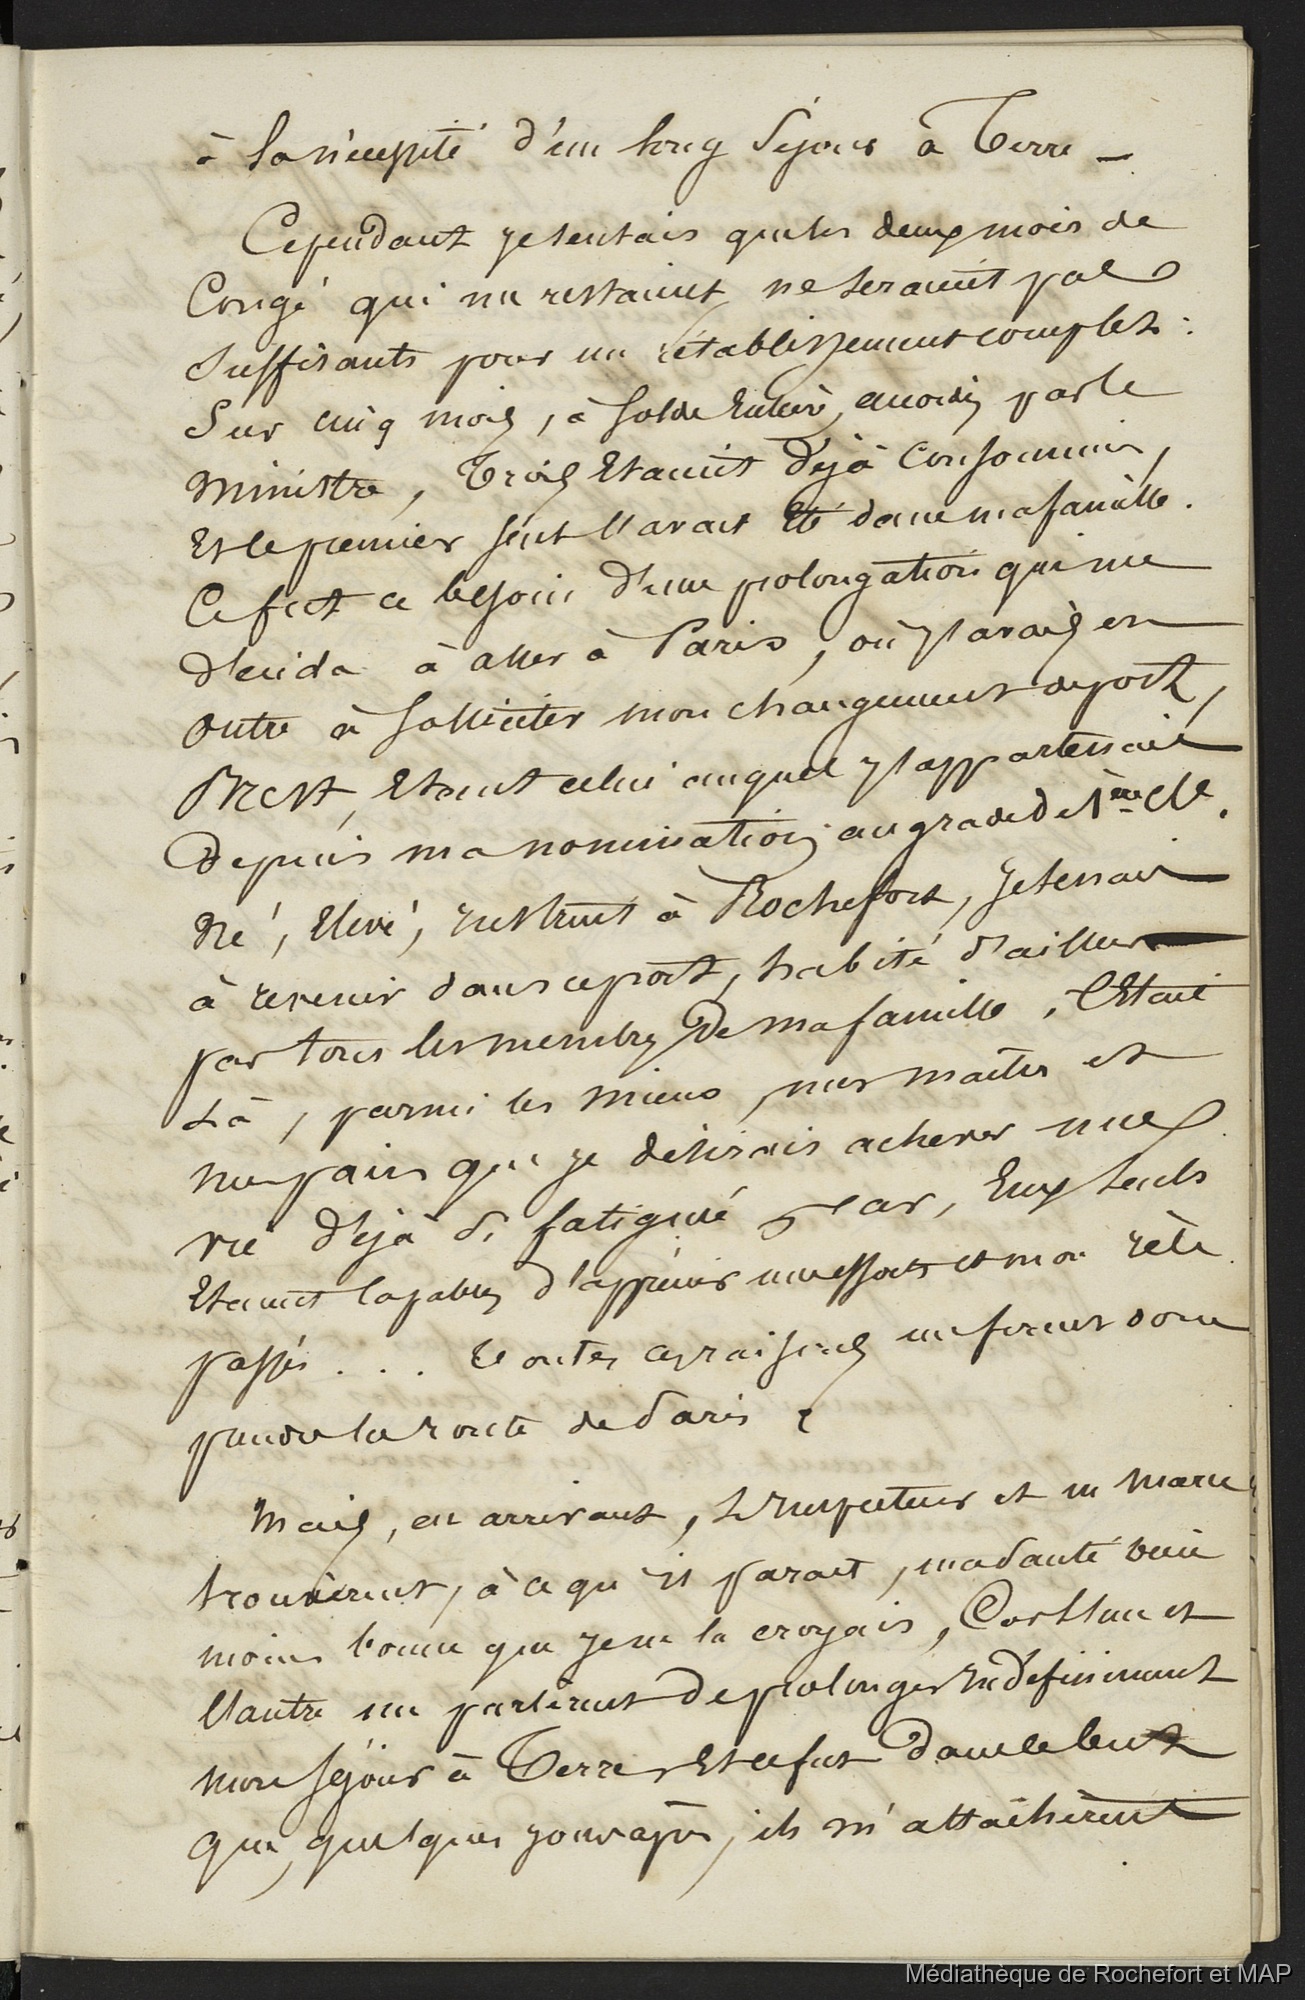 à la nécessité d'un long séjour à Terre _
Cependant je sentais que les deux mois de
Congé qui me restaient ne seraient pas
suffisants pour un rétablissement complet :
Sur cinq mois, à solde entière, accordés par le
Ministre, Trois étaient déjà consommés,
Et le premier seul l'avait été dans ma famille.
Ce fut ce besoin d'une prolongation qui me
décida à aller à Paris, où j'avais en
outre à solliciter mon changement de port,
Brest, étant celui auquel j'appartenais
depuis ma nomination au grade de 1ère cle.
Né, élevé, instruit à Rochefort, je tenais
à revenir dans ce port, habité d'ailleurs
par tous les membres de ma famille. C'était
Là, parmi les miens, mes maîtres et
mes pairs que je désirais achever une
vie déjà si fatiguée car, Eux seuls
étaient capables d'apprécier mes efforts et mon zèle
passés . . . Toutes ces raisons me firent donc
prendre la route de Paris.
Mais, en arrivant, L'Inspecteur et
trouvèrent, à ce qu'il parait, ma santé bien
moins bonne que je ne la croyais, Car l'un et
l'autre me parlèrent de prolonger indéfiniment
mon séjour à Terre, Et ce fut dans le but
que, quelques jours après, ils m'attachèrent
Médiathèque de Rochefort et MAP